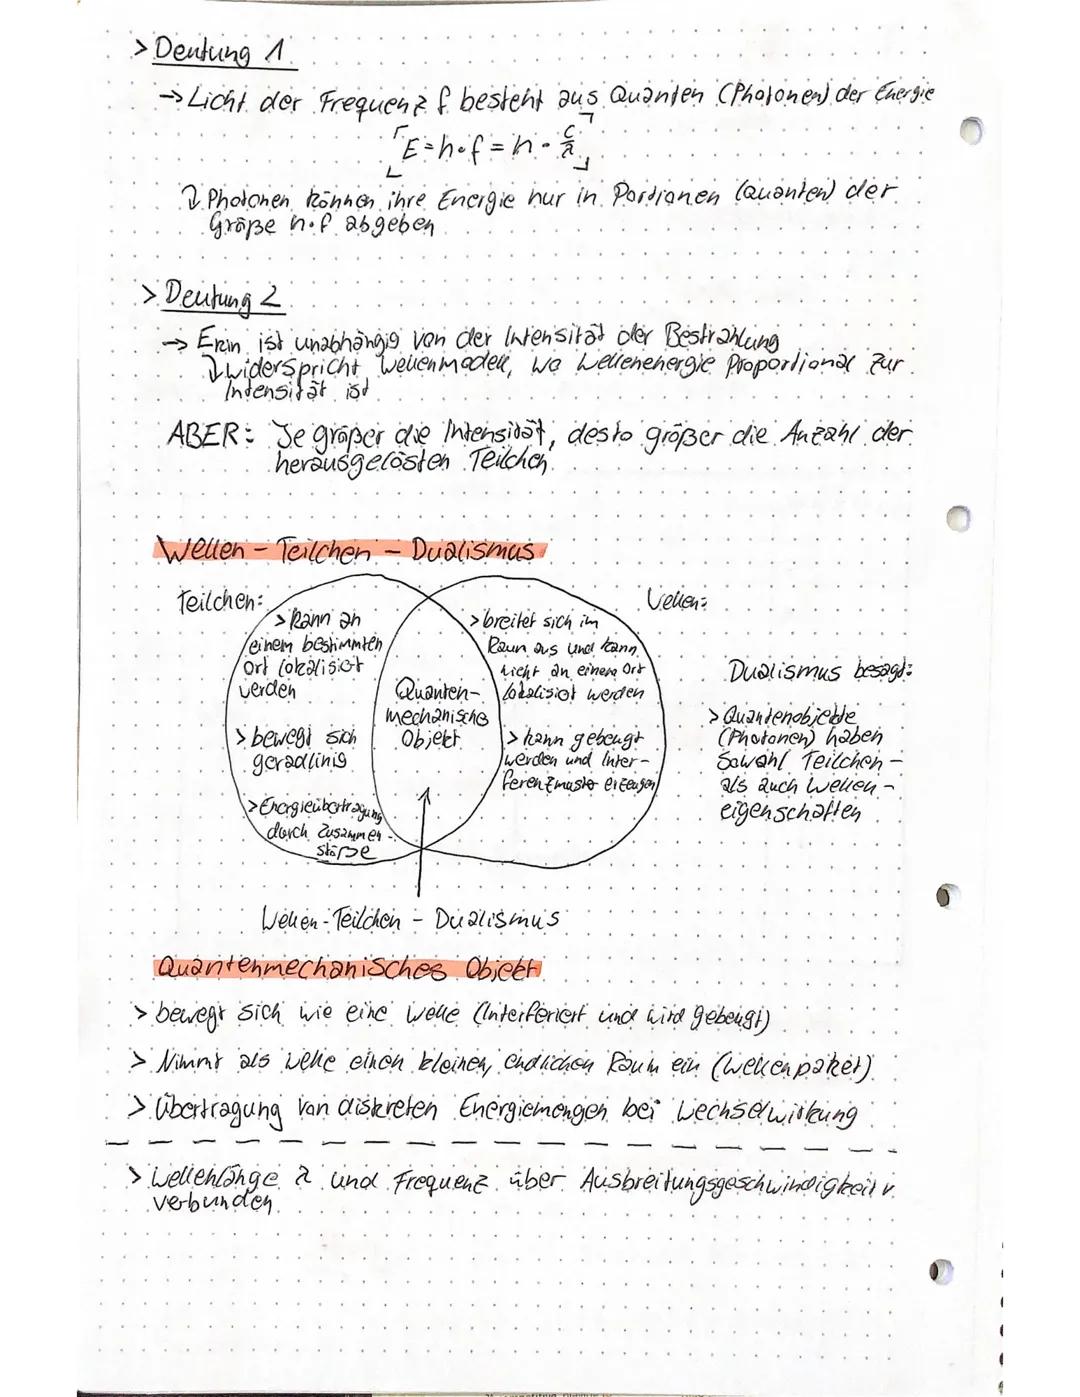 > Deutung 1
→ Licht der Frequenz f besteht aus Quanten (Photonen) der Energie
E = h · f = h · c/λ
↳ Photonen können ihre Energie nur in Portionen (Quanten) der
Größe h · f abgeben
> Deutung 2
→ Ekin ist unabhängig von der Intensität der Bestrahlung
↳ widerspricht Wellenmodell, wo Wellenenergie Proportional zur
Intensität ist
ABER: Je größer die Intensität, desto größer die Anzahl der
herausgelösten Teilchen
Wellen - Teilchen - Dualismus
Teilchen:
> kann an
einem bestimmten
Ort lokalisiert
werden
> bewegt sich
geradlinig
> Energieübertragung
durch Zusammen-
stöße
Quanten-
mechanische
Objekt
Wellen:
> breitet sich im
Raum aus und kann
nicht an einem Ort
lokalisiert werden
> kann gebeugt
werden und Inter-
ferenzmuster erzeugen
Dualismus besagt:
> Quantenobjekte
(Photonen) haben
Sowohl Teilchen-
als auch Wellen-
eigenschaften
Wellen-Teilchen - Dualismus
Quantenmechanisches Objekt
> bewegt sich wie eine Welle (Interferiert und wird gebeugt)
> Nimmt als Welle einen kleinen, endlichen Raum ein (Wellenpaket)
> Übertragung von diskreten Energiemengen bei Wechselwirkung
> Wellenlänge λ und Frequenz über Ausbreitungsgeschwindigkeit v
verbunden